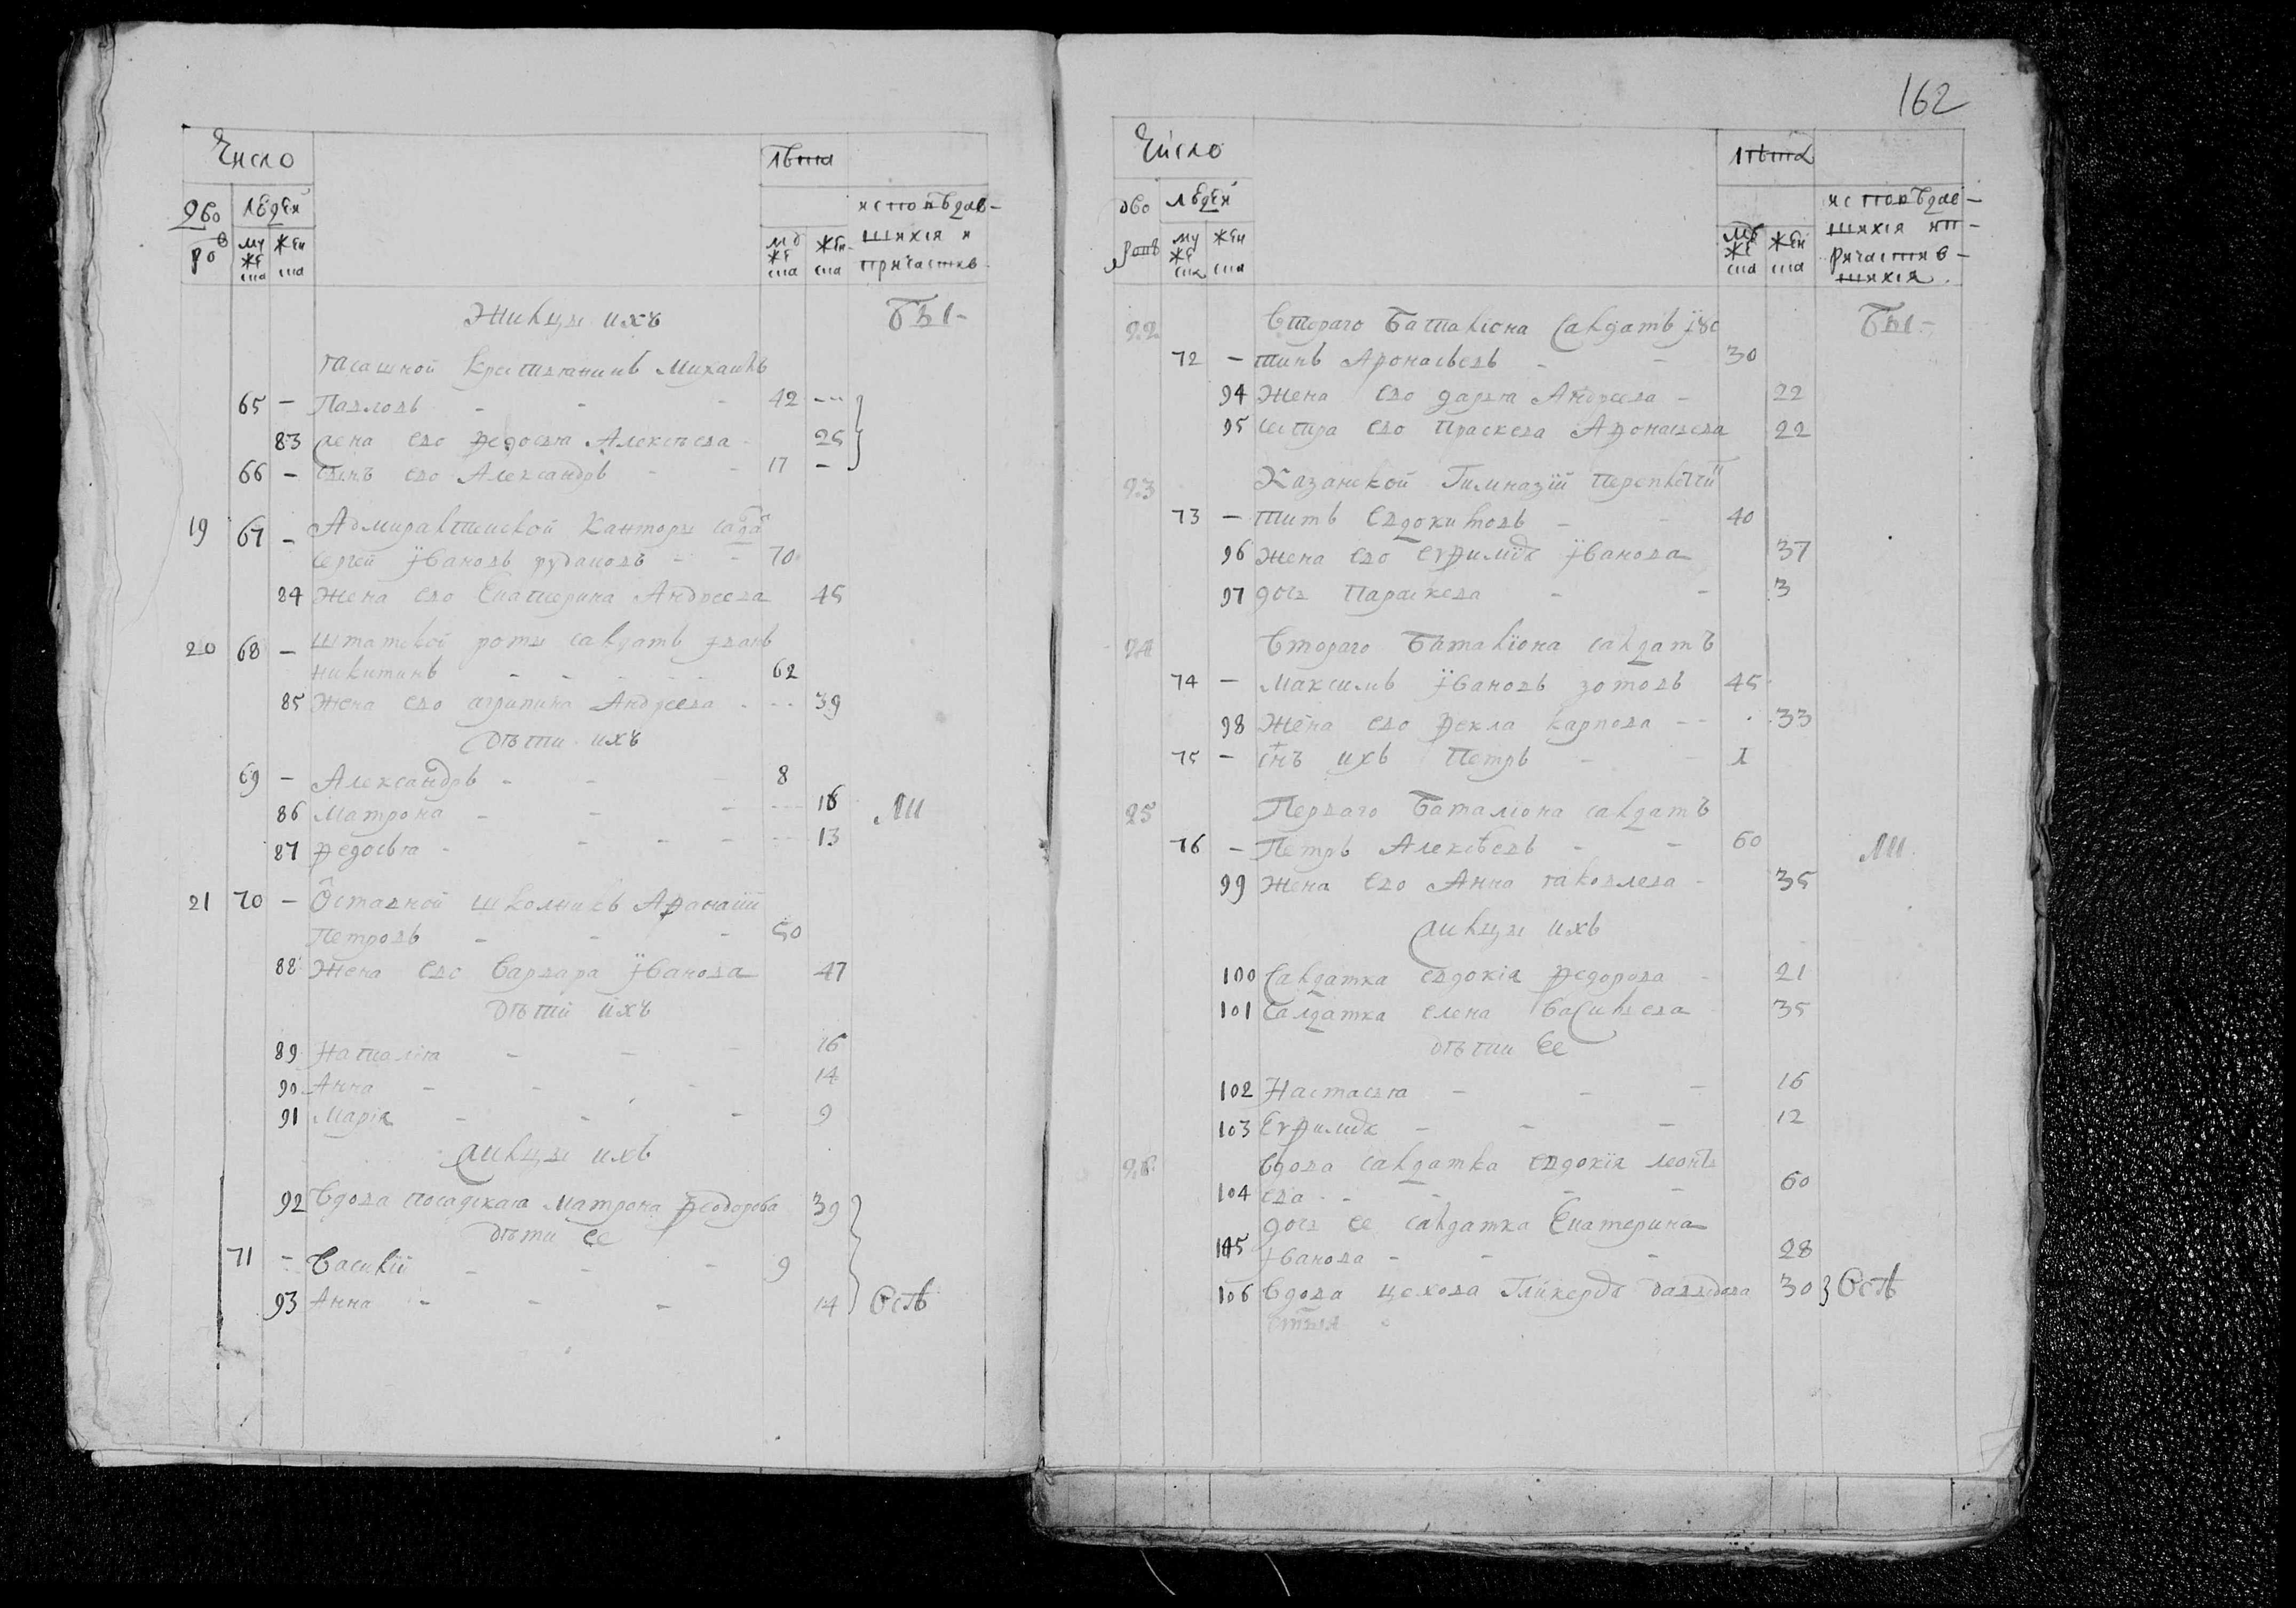 Число
лѣта
Дво ровъ
людей
муж ска
жен ска
муж ска
жен ска
исповѣдав-
шихся и
причастив
Жильцы ихъ
БЫ-
ясашной крестьянинъ Михаилъ
65 - Павловъ - - - 42
83 жена ево Ѳедосья Алексѣева 25
66 - сынъ ево Александръ - - 17 -
19 67 - Адмиралтейской канторы
Сергей Ївановъ - - 70
84 жена ево Екатерина Андреева 45
20 68 - штатской роты салдатъ Їванъ
никитинъ - - - - 62
85 жена ево агрипина Андреева - 39
дѣти ихъ
69 - Александръ - - 8
86 Матрона - - - 16
ЛИ
87 Ѳедосья - - - - 13
21 70 - Ѿставной школникъ Аѳанасїй
Петровъ - - - 50
88 жена ево Варвара Їванова 47
дѣти ихъ
89 Наталья - - - 16
90 Анна - - - 14
91 Марія - - - 9
жильцы ихъ
92 Вдова посадская Матрона Ѳеодорова 39
дѣти ее
71 - Василїй - - - 9
93 Анна - - - 14
162
Число
лѣта
дво ровъ
людей
муж ска
жен ска
муж ска
жен ска
исповѣдав-
шихся и п-
ричастив-
шихся.
22 Втораго Баталиона Салдатъ Їус
БЫ-
72 - тинъ Афонасьевъ - - 30
94 Жена ево дарья Андреева - 22
95 сестра ево Праскева Афонасьева 22
23 Казанской Гимназїи переплетчи
73 - Титъ Евдокимовъ - - 40
96 жена ево Евфимїя Їванова 37
97 дочь Параскева - - 3
24 Втораго Баталїона салдатъ
74 - Максимъ Ївановъ зотовъ 45
98 Жена ево Ѳекла карпова - - 33
75 - снъ ихъ Петръ - - 1
25 Перваго баталиона салдатъ
76 - Петръ Алексѣевъ - - 60
ЛИ
99 Жена ево Анна яковлева - 35
жильцы ихъ
100 Салдатка евдокія Ѳедорова - 21
101 Салдатка елена Васильева 35
дѣти ее
102 Настасья - - - 16
103 Евфимия - - - 12
26 вдова салдатка евдокїя леонть
104 ева - - - - 60
дочь ее салдатка Екатерина
105 Їванова - - - 28
106 Вдова цехова Гликерья давыдова 30